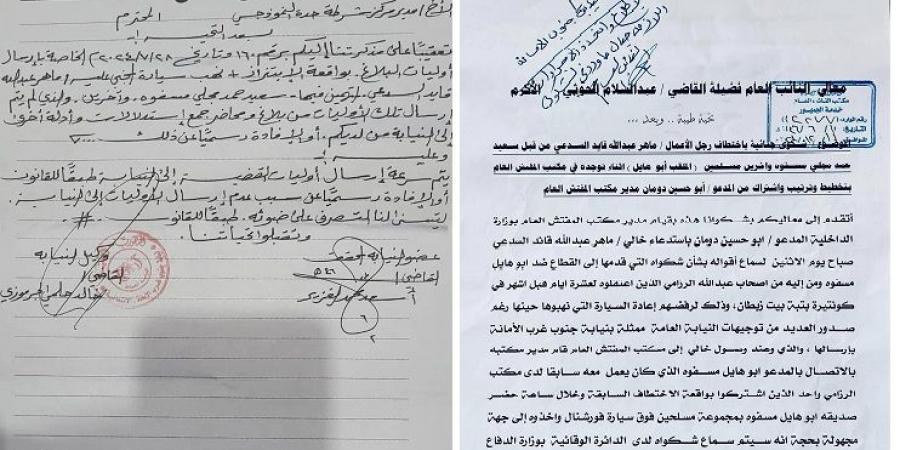 الأخ/ مدير مركز شرطة حدة النموذجي المحترم
بعد التحية
تعقيبا على مذكرتنا إليكم برقم ١٦٠ وتاريخ ٢٠٢٤/٧/٢٨ الخاصة بإرسال
أوليات البلاغ بواقعة الابتزاز + نهب سيارة المجني عليه/ ماهر عبدالله
قايد السدعي، المتهمين فيها سعيد حمد مجلي مسفوه وآخرين. والذي لم يتم
إرسال تلك الأوليات من بلاغ ومحاضر جمع استدلالات وأدلة أخرى
إلى النيابة من لديكم، أو الإفادة رسميا عن ذلك
وعليه
يتم سرعة إرسال أوليات القضية إلى النيابة طبقا للقانون
أو الإفادة رسميا عن سبب عدم إرسال الأوليات إلى النيابة
ليتسنى لنا التصرف على ضوئه. طبقا للقانون. #
وتقبلوا تحياتنا.
عضو النيابة
وكيل النيابة
القاضي/
القاضي/
خالد حلمي الجرموزي
معالي النائب العام فضيلة القاضي / عبدالسلام الحوثي الأكرم
تحية طيبة .. وبعد ...
الموضوع / شكوى جنائية باختطاف رجل الأعمال/ ماهر عبدالله قايد السدعي من قبل سعيد
حمد مجلي مسفوه وآخرين مسلحين ( الملقب أبو هايل) اثناء توجده في مكتب المفتش العام
بتخطيط وترتيب واشتراك من المدعو / أبو حسين دومان مدير مكتب المفتش العام
أتقدم إلى معاليكم بشكوانا هذه بقيام مدير مكتب المفتش العام بوزارة
الداخلية المدعو / ابو حسين دومان باستدعاء خالي / ماهر عبدالله قائد السدعي
صباح يوم الاثنين لسماع أقواله بشأن شكواه التي قدمها إلى القطاع ضد ابو هايل
مسفوه ومن إليه من اصحاب عبدالله الرزامي الذين اعتقلوه لعشرة ايام قبل اشهر في
كونتيرة بتبة بيت زبطان، وذلك لرفضهم إعادة السيارة التي نهبوها حينها رغم
صدور العديد من توجيهات النيابة العامة ممثلة بنيابة جنوب غرب الأمانة
بإرسالها ، والذي وعند وصول خالي إلى مكتب المفتش العام قام مدير مكتبه
بالاتصال بالمدعو ابو هايل مسفوه الذي كان يعمل معه سابقا لدى مكتب
الرزامي واحد الذين اشتركوا بواقعة الاختطاف السابقة وخلال ساعة حضر
صديقه ابو هايل مسفوه بمجموعة مسلحين فوق سيارة فورشنال واخذوه إلى جهة
مجهولة بحجة انه سيتم سماع شكواه لدى الدائرة الوقائية بوزارة الدفاع